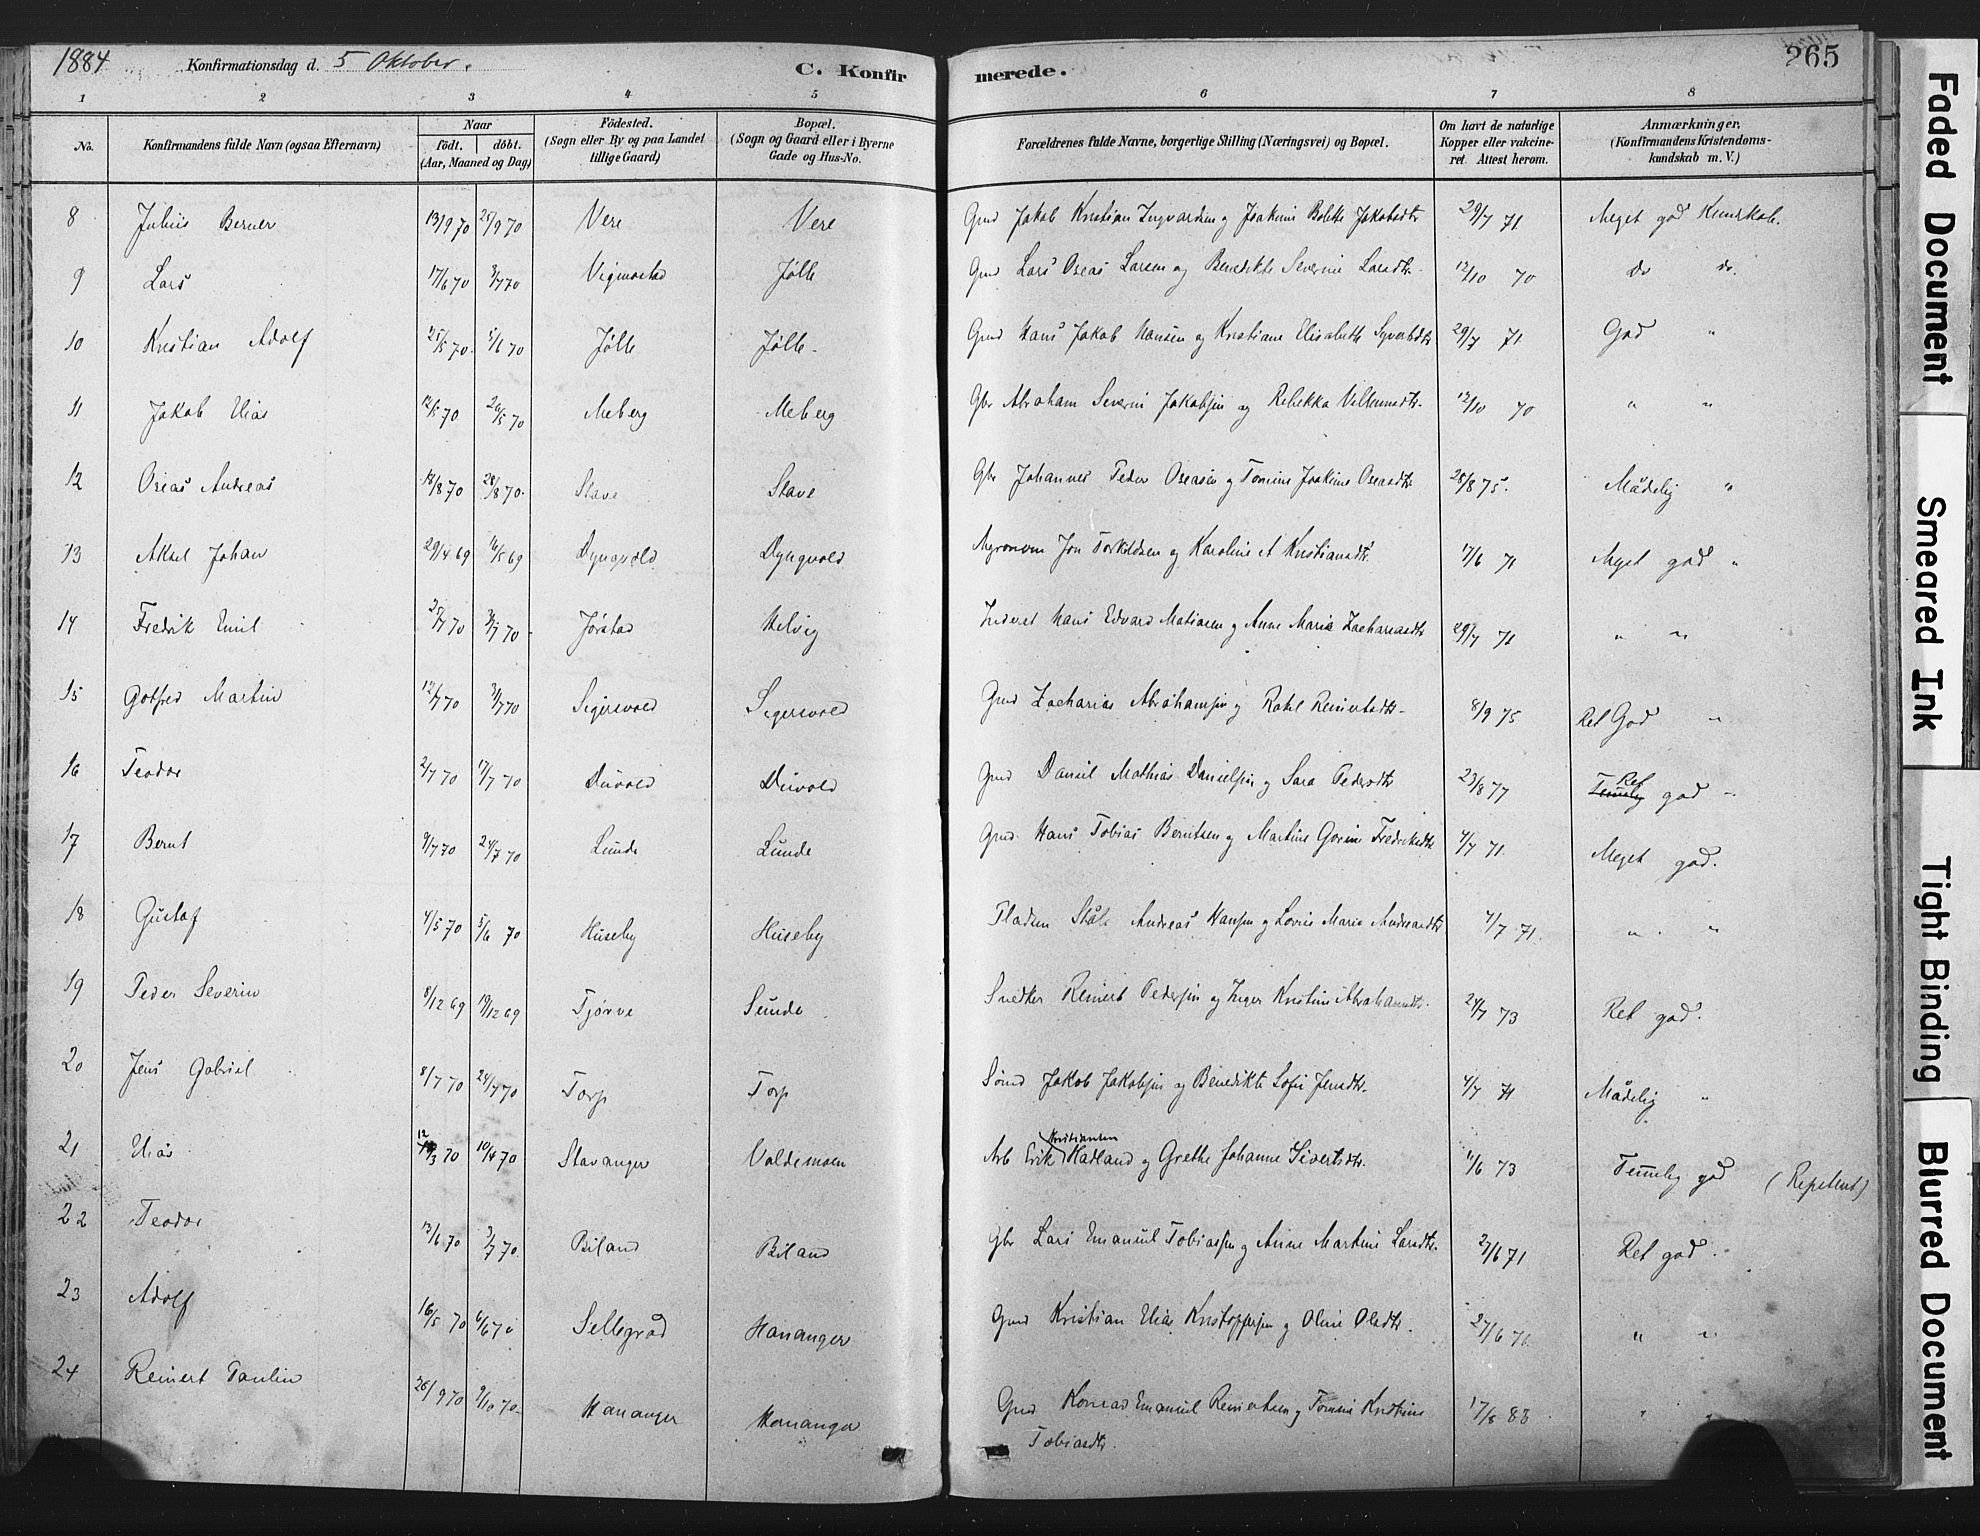 1884 Konfirmationsdag d. 5 Oktober. C. Konfir merede. 265
1 2 3 4 5 6 7 8
No. Konfirmandens fulde Navn (ogsaa Efternavn) Naar födt. döbt. (Aar, Maaned og Dag) Födested. (Sogn eller By og paa Landet tillige Gaard) Bopæl. (Sogn og Gaard eller i Byerne Gade og Hus-No. Forældrenes fulde Navne, borgerlige Stilling (Næringsvei) og Bopæl. Om havt de naturlige Kopper eller vakcineret. Attest herom. Anmærkninger. (Konfirmandens Kristendomskundskab m. V.)
8 Julius Berner 13/9 70 25/9 70 Vere Vere Gmd Jakob Kristian Ingvardsen og Joakime Bolette Jakobsdtr 29/7 71 Meget god Kunskab.
9 Lars 17/6 70 3/7 70 Vigmostad Jølle Gmd Lars Oseas Larsen og Benedikte Severine Larsdtr. 12/10 70 do do.
10 Kristian Adolf 25/5 70. 5/6 70 Jølle Jølle Gmd Hans Jakob Hansen og Kristiane Elisabeth Syvertsdtr 29/7 71 God "
11 Jakob Elias 12/5 70 26/5 70 Meberg Meberg Gbr Abraham Severin Jakobsen og Rebekka Villumsdtr. 12/10 70 " "
12 Oseas Andreas 18/8 70 28/8 70. Stave Stave Gbr Johannes Peder Oseasen og Tomine Joakime Oseasdtr 25/8 75. Mådelig "
13 Aksel Johan 29/4 69 16/5 69 Dyngvold Dyngvold Agronom Jon Torkildsen og Karoline A Kristiansdtr. 17/6 71 Meget god "
14 Fredrik Emil 2/7 70 Jørstad Helvig Hans Edvard Matiasen og Anne Marie Zachariasdtr 29/7 71 " "
15 Gotfred Martin 12/7 70 31/7 70 Sigersvold Sigersvold Gmd Zacharias Abrahamsen og Rakel Reinertsdtr. 8/9 75 Ret God "
16 Teodor 2/7 70 17/7 70 Duvold Duvold Gmd Daniel Mathias Danielsen og Sara Pedersdtr 23/8 77 Ret god "
17 Bernt 9/7 70 24/7 70 Lunde Lunde Gmd. Hans Tobias Berntsen og Martine Gorine Fredriksdtr 4/7 71. Meget god.
18 Gustaf 4/5 70 5/6 70 Huseby Huseby Pladsm Ståle Andreas Hansen og Lovise Marie Andreasdtr 4/7 71. " "
19 Peder Severin 8/12 69 19/12 69 Tjørve Sunde Snedker Reinert Pedersen og Inger Kristine Abrahamsdtr. 24/7 73 Ret god.
20 Jens Gabriel 8/7 70 24/7 70 Torp Torp Sømd Jakob Jakobsen og Benedikte Sofie Jensdtr. 4/7 71 Mådelig "
21 Elias 12/3 70 10/4 70 Stavanger Voldemoen Arb Erik Kristiansen Hadland og Grethe Johanne Sivertsdtr. 11/6 73 Temmelig god (Repetent)
22 Teodor 13/6 70 3/7 70. Biland Biland Gbr Lars Emanuel Tobiassen og Anne Martine Larsdtr. 27/6 71 Ret god.
23 Adolf 16/5 70 6/6 70 Sellegrod Hananger Gmd Kristian Elias Kristoffersen og Oline Olsdtr. 27/6 71. " "
24 Reinert Paulin 26/9 70 9/10 70. Hananger Hananger Gmd Konrad Emanuel Reinertsen og Tomine Kristine 17/8 83. " "
Tobiasdtr.
Faded Document
Smeared Ink
Tight Binding
Blurred Document